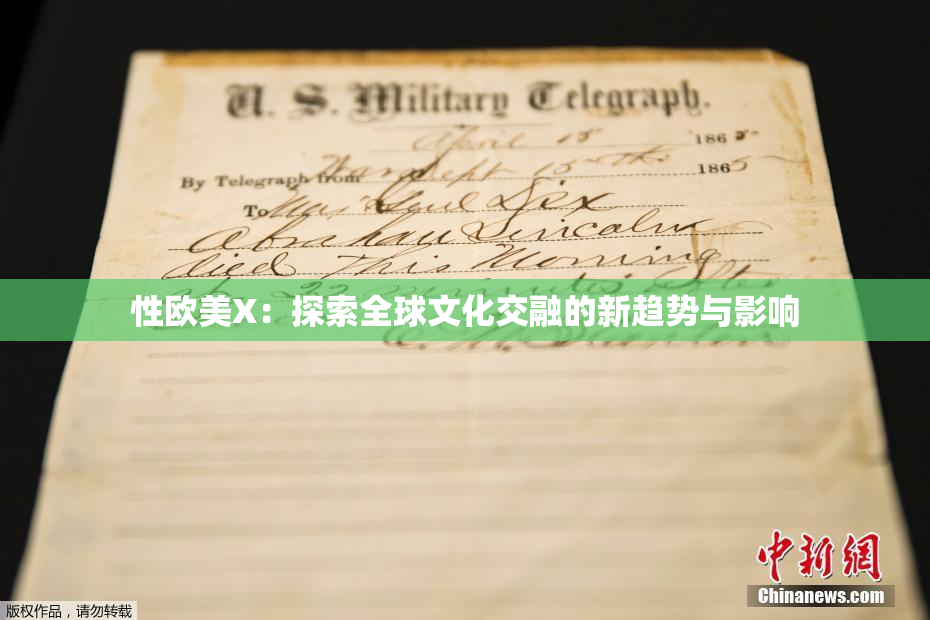 U. S. Military Telegraph.
April 15 1865
By Telegraph from War Dept 15th 1865
To Maj Genl Dix
Abraham Lincoln
died This Morning
at 22 minutes after
性欧美X：探索全球文化交融的新趋势与影响
E. M. Stanton
中新网
Chinanews.com
版权作品，请勿转载